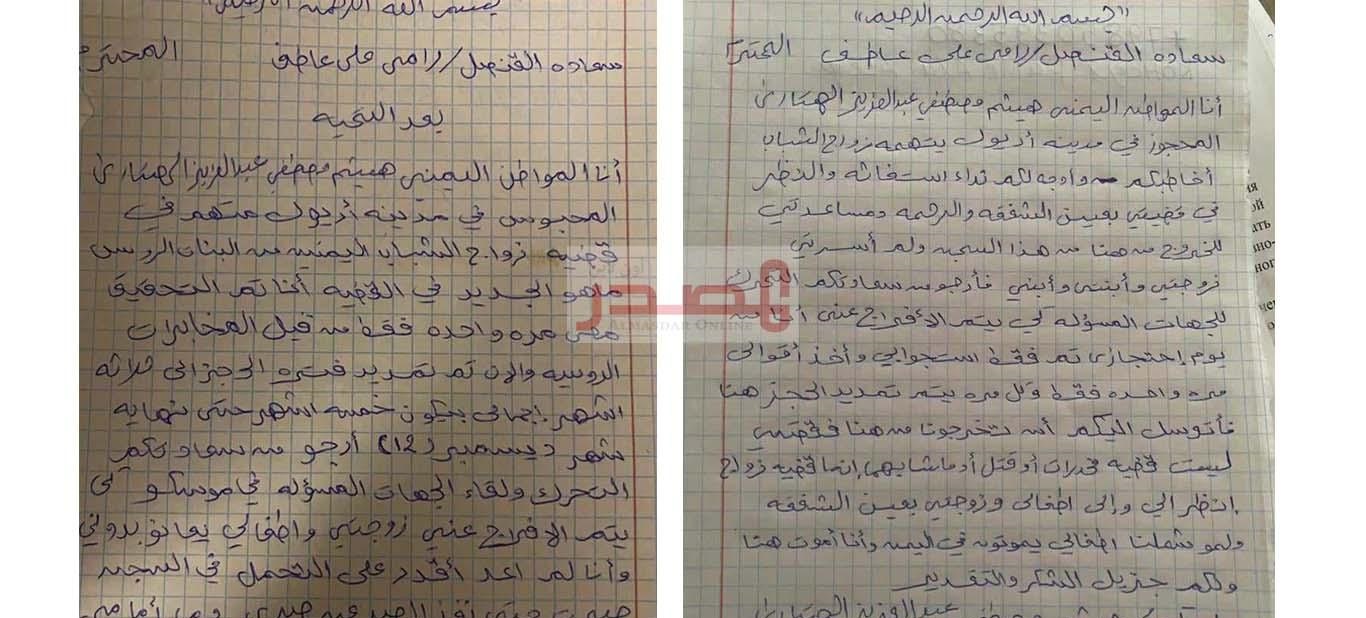 بسم الله الرحمن الرحيم
سعاده القنصل/رامي علي عاطف المحترم
بعد التحيه
أنا المواطن اليمني هيثم مصطفى عبدالعزيز الهتاري
المحبوس في مدينه أريول متهم في
قضيه زواج الشباب اليمنيه من البنات الروس
ماهو الجديد في القضيه أنا تم التحقيق
معي مره واحده فقط من قبل المخابرات
الروسيه والان تم تمديد فتره الحجز الى ثلاثه
أشهر إجمالي بيكون خمسه اشهر حتى نهايه
شهر ديسمبر (12) أرجو من سعادتكم
التحرك ولقاء الجهات المسؤله في موسكو لي
يتم الافراج عني زوجتي واطفالي يعانو بدوني
وأنا لم اعد أقدر على التحمل في السجن
"بسم الله الرحمن الرحيم"
سعاده القنصل/رامي علي عاطف المحترم
أنا المواطن اليمني هيثم مصطفى عبدالعزيز الهتاري
المحجوز في مدينه أريول بتهمه زواج الشباب
أخاطبكم وأوجه لكم نداء استغاثه والنظر
في قضيتي بعين الشفقه والرحمه ومساعدتي
للخروج من هنا من هذا السجن ولم أسرتي
زوجتي وأبنتي وأبني فأرجو من سعادتكم التحرك
للجهات المسؤله لي يتم الأفراج عني أنا من
يوم إحتجازي تم فقط استجوابي وأخذ أقوالي
مره واحده فقط وكل مره يتم تمديد الحجز هنا
فأتوسل اليكم أن تخرجونا من هنا فقضيتي
ليست قضيه مخدرات أو قتل أو ماشابهها إنما قضيه زواج
انتظر الي وإلى اطفالي وزوجتي بعين الشفقه
ولمو شملنا اطفالي يموتون في اليمن وأنا أموت هنا
ولكم جزيل الشكر والتقدير
عبدالعزيز الهتاري
المصدر
أون لاين
ALMASDAR ONLINE